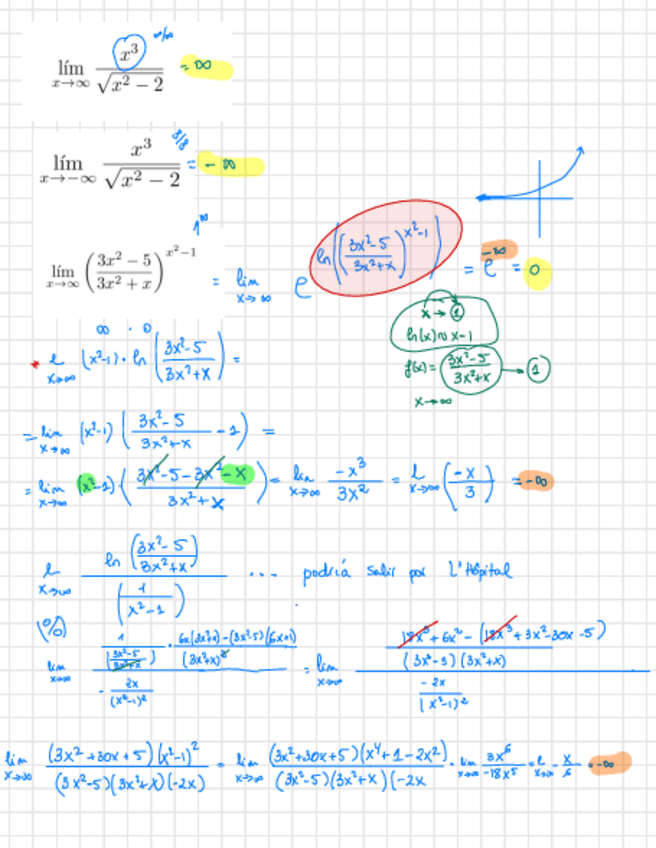 lím x→∞ x³/√(x² − 2) = ∞ ∞/∞
lím x→−∞ x³/√(x² − 2) = −∞
1^∞
lím x→∞ ((3x² − 5)/(3x² + x))^(x²−1) = lim x→∞ e^(ln(((3x²−5)/(3x²+x))^(x²−1))) = e^(−∞) = 0
x → 1
ln(x) ≈ x−1
f(x) = (3x²−5)/(3x²+x) → 1
x→∞
∞ · 0
* l x→∞ (x²−1) · ln((3x²−5)/(3x²+x)) =
= lim x→∞ (x²−1) ((3x²−5)/(3x²+x) − 1) =
= lim x→∞ (x²−1) · ((3x²−5−3x²−x)/(3x²+x)) = lim x→∞ −x³/3x² = l x→∞ (−x/3) = −∞
l x→∞ ln((3x²−5)/(3x²+x))/(1/(x²−1)) ... podría salir por L'Hôpital
(0/0)
lim x→∞ (1/((3x²−5)/(3x²+x)) · (6x(3x²+x)−(3x²−5)(6x+1))/(3x²+x)²)/(−2x/(x²−1)²) = lim x→∞ ((18x³+6x²−(18x³+3x²−30x−5))/((3x²−5)(3x²+x)))/(−2x/(x²−1)²)
lim x→∞ (3x²+30x+5)(x²−1)²/((3x²−5)(3x²+x)(−2x)) = lim x→∞ (3x²+30x+5)(x⁴+1−2x²)/((3x²−5)(3x²+x)(−2x = lim x→∞ 3x⁶/−18x⁵ = l x→∞ −x/6 = −∞